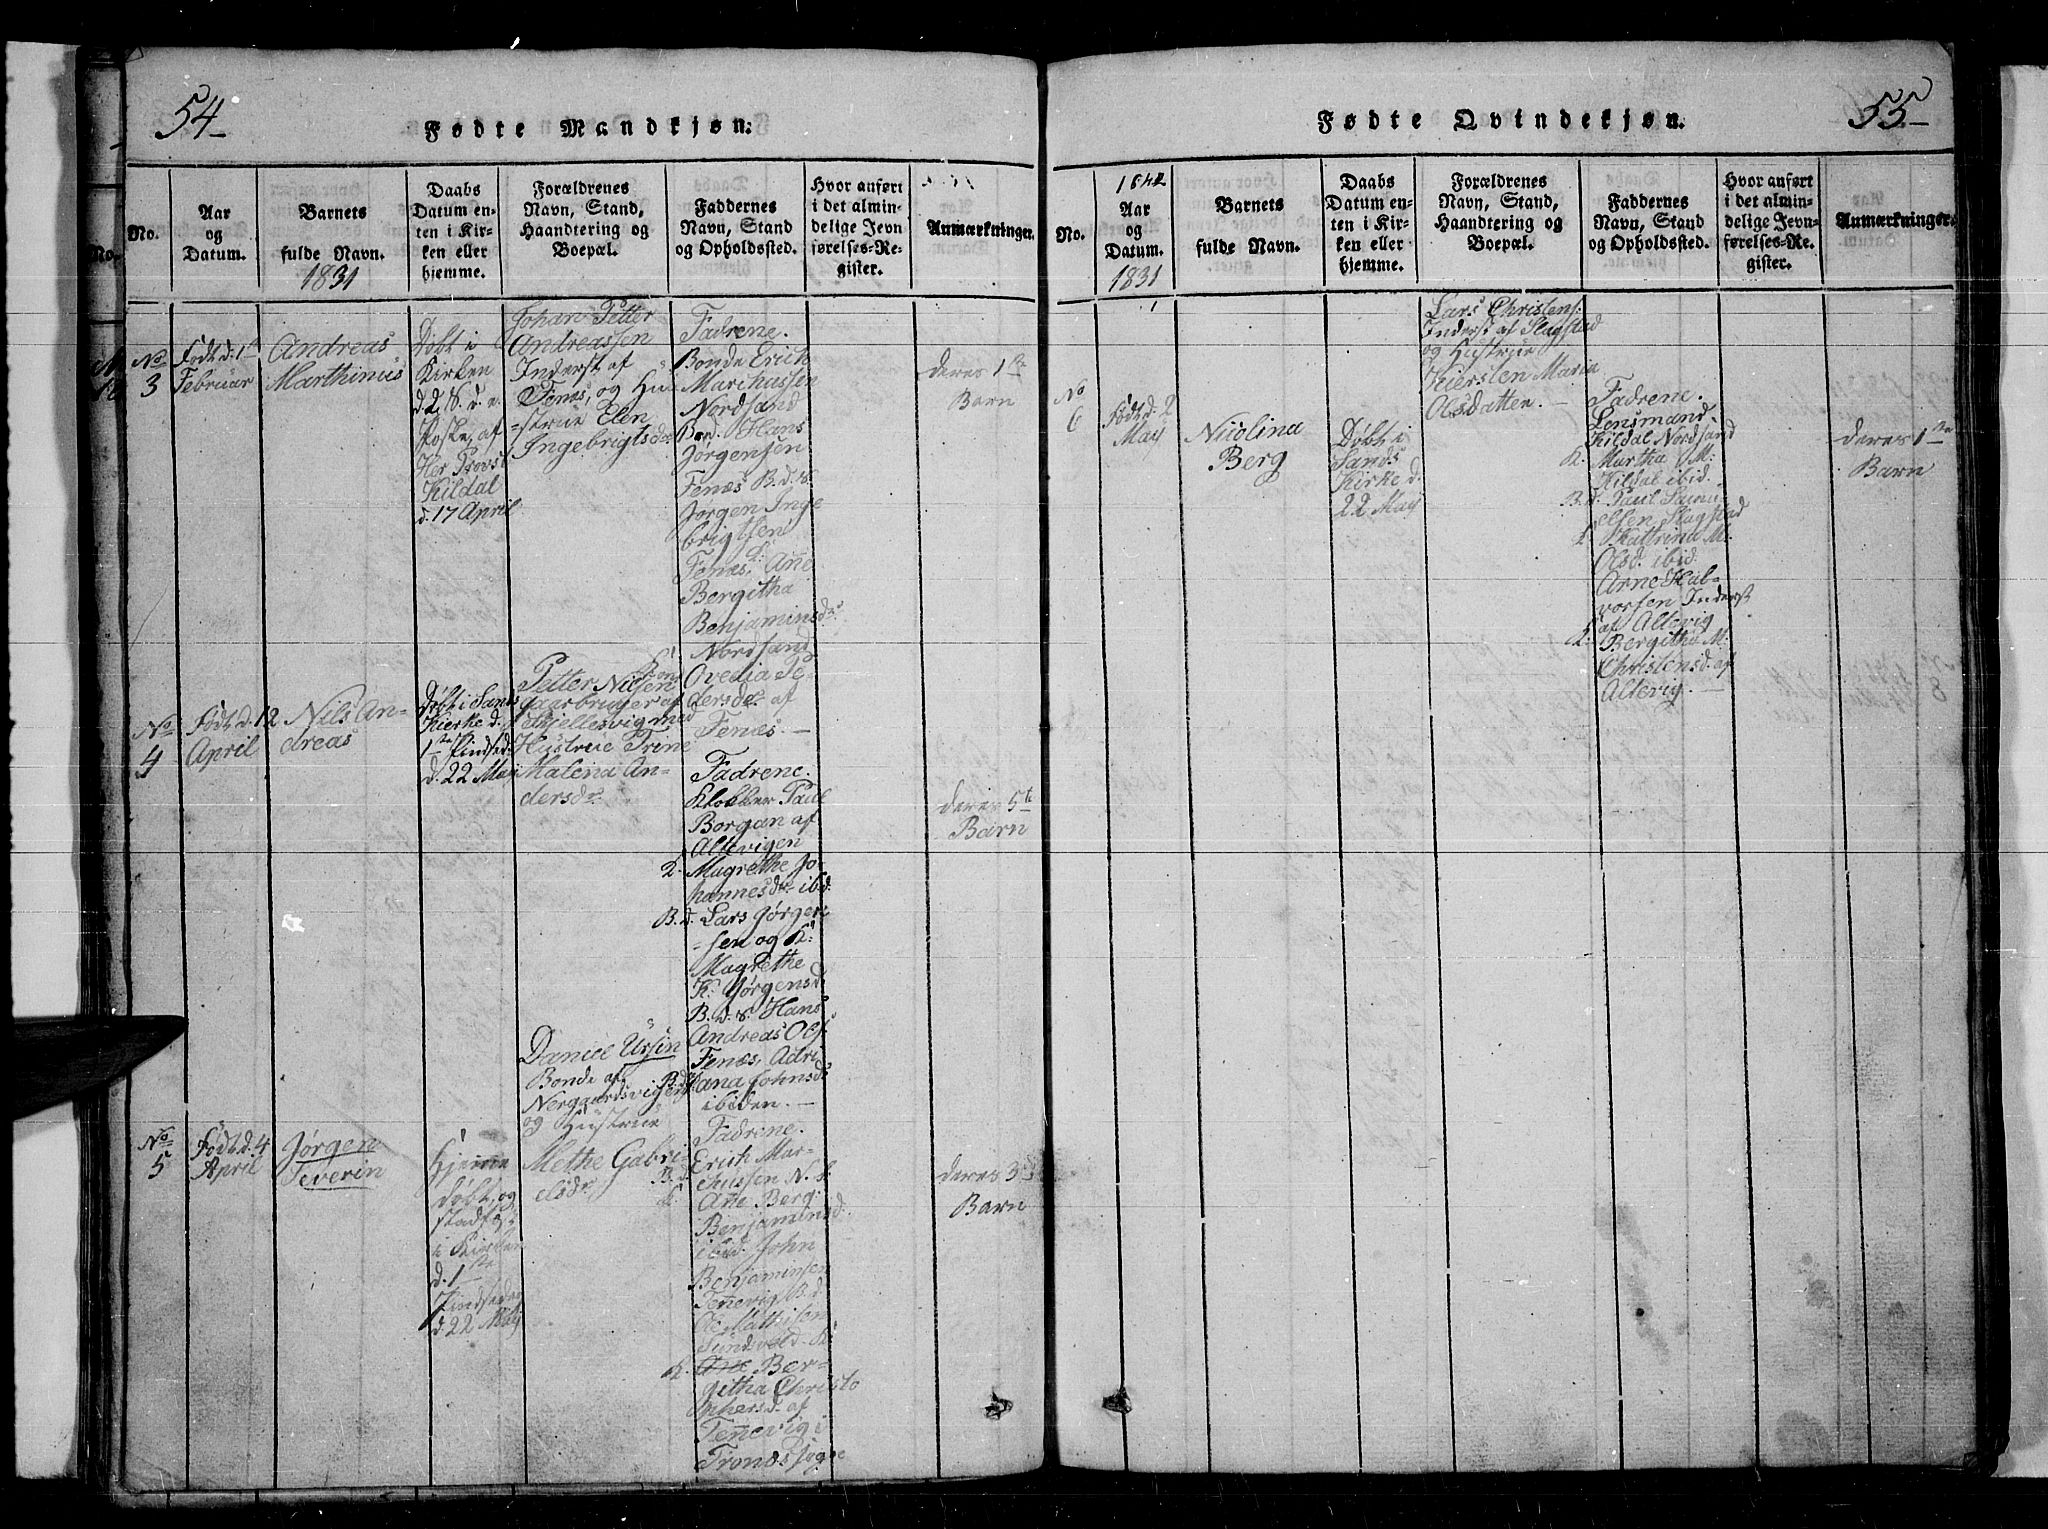 54
Fødte Mandkjøn.
No.
No.
Aar
og
Datum.
Barnets
fulde Navn.
1831
Daabs
Datum en-
ten i Kir-
ken eller
hjemme.
Forældrenes
Navn, Stand,
Haandtering og
Boepæl.
Faddernes
Navn, Stand
og Opholdssted.
Hvor anført
i det almin-
delige Jevn
førelses-Re-
gister.
Anmærkninger.
No
3
Født d. 1
Februar
Andreas
Marthinus
Døbt i
Kirken
d. 2 S. d. e.
Poske, af
Her Provst
Kildal
d. 17 April
Johan Petter
Andreassen
Inderst af
Fenæs, og Hu-
strue Elen
Ingebrigtsdr
Fadrene.
Bonde Erich
Marchussen
Nordsand
Bd. Hans
Jørgensen
Fenæs B. d. s.
Jørgen Inge
brigtsen
Fenæs, Ane
Bergitha
Benjaminsdr
Nordsand
Ovedia Pe-
dersdr af
Fenæs. —
deres 1te
Barn
No
4
Født d. 12
April
Nils An-
dreas
Døbt i Sands
Kierke d.
1te Pindsed.
d. 22 May
Petter Nilsen
gaarbruger af
Kjellesvig med
Hustrue Trine
Malena An-
dersdr
Fadrene.
Klokker Paul
Borgan af
Altevigen
K. Magrethe Jo-
hannesdr ibid.
B. d. Lars Jørgen
sen og K:
Magrethe
K. Jørgensd.
B. d. s. Hans
Andreas Ols.
Fenæs, Adri
ana Johnsdr
ibiden. —
deres 5te
Barn
No
5
Født d. 4
April
Jørgen
Severin
Hjemme
døbt, og
stadf.
i Kirken
d. 1te
Pindsedag
d. 22 May
Daniel Ursin
Bonde af
Nergaardsvigen
og Hustrue
Methe Gabri-
elsdr
Fadrene.
B. d. Erich Mar-
chussen N. S.
K. Ane Berg:
Benjaminsd.
ibid. John
Benjaminsen
Tenevig B. d.
Ole Mathisen
Sundvold. K.
K. Ane Ber-
githa Christo
phersd. af
Tenevig i
Tronæs sogne
deres 3
Barn
55
Fødte Qvindekjøn.
No.
1831
Aar
og
Datum.
1831
Barnets
fulde Navn.
Daabs
Datum en-
ten i Kir-
ken eller
hjemme.
Forældrenes
Navn, Stand,
Haandtering og
Boepæl.
Faddernes
Navn, Stand
og Opholdssted.
Hvor anført
i det almin-
delige Jevn-
førelses-Re-
gister.
Anmærkninger.
No
6
Født d. 2
May
Nicolina
Berg
Døbt i
Sands
Kirke d.
22 May
Lars Christens.
Inderst af Slagstad
og Hustrue
Kiersten Maria
Olsdatter. —
Fadrene.
Lensmand
Kildal Nordsand
K. Martha M:
Kildal ibid.
B. d. Paul Samu-
elsen Slagstad
K. Kattrina M:
Olsd. ibid.
Arne Hal-
vorsen Inderst
af Altevig
K. Bergitha M:
Christensd. af
Altevig. —
deres 1te
Barn